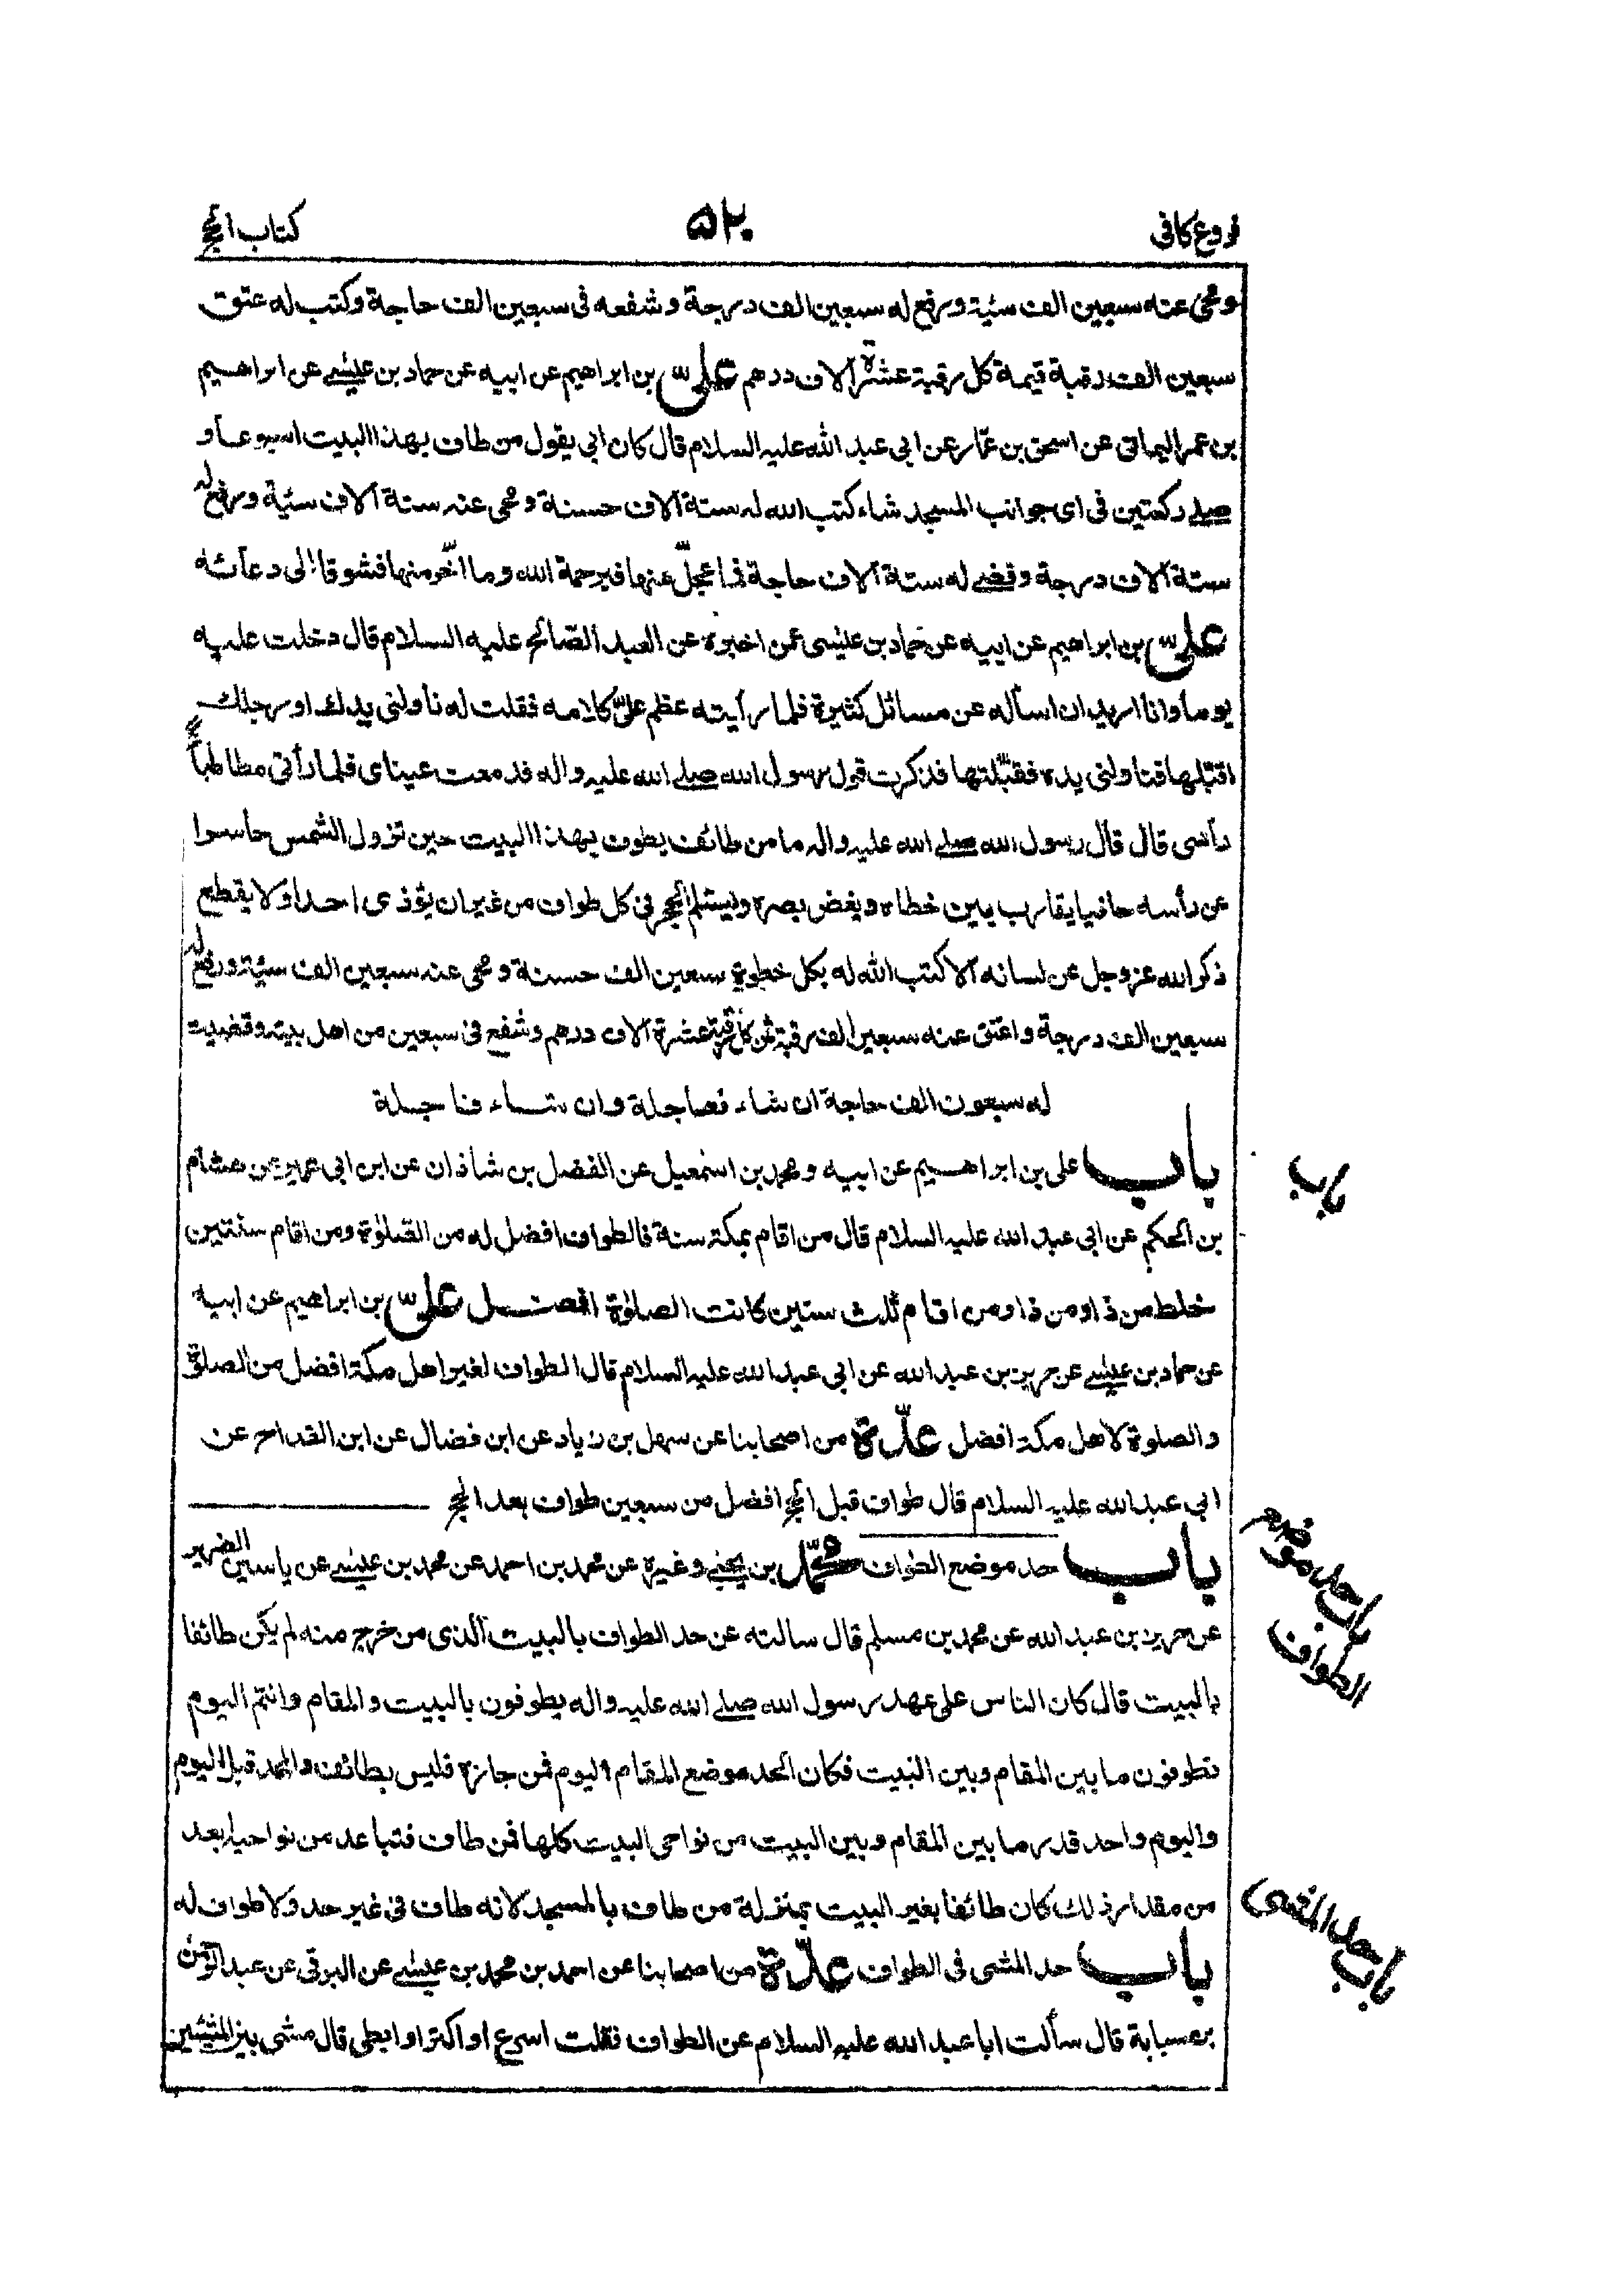 فروع كافى
٥٢٠
كتاب الحج
ومحى عنه سبعين الف سيئة ورفع له سبعين الف درجة وشفعه فى سبعين الف حاجة وكتب له عتق
سبعين الف رقبة قيمة كل رقبة عشرة آلاف درهم علىّ بن ابراهيم عن ابيه عن حماد بن عيسى عن ابراهيم
بن عمر اليمانى عن اسحق بن عمّار عن ابى عبد الله عليه السلام قال كان ابى يقول من طاف بهذا البيت اسبوعا و
صلى ركعتين فى اى جوانب المسجد شاء كتب الله له ستة آلاف حسنة ومحى عنه ستة آلاف سيئة ورفع له
ستة آلاف درجة وقضى له ستة آلاف حاجة فما عجّل عنها فبرحمة الله وما اخّر منها فشوقا الى دعائه
علىّ بن ابراهيم عن ابيه عن حماد بن عيسى عمن اخبره عن العبد الصّالح عليه السلام قال دخلت عليه
يوما وانا اريد ان اسأله عن مسائل كثيرة فلما رأيته عظم علىّ كلامه فقلت له ناولنى يدك او رجلك
اقبّلها فناولنى يده فقبّلتها فذكرت قول رسول الله صلى الله عليه واله فدمعت عيناى فلما رآنى مطاطئا
رأسى قال قال رسول الله صلى الله عليه واله ما من طائف يطوف بهذا البيت حين تزول الشمس حاسرا
عن رأسه حافيا يقارب بين خطاه ويغض بصره ويستلم الحجر فى كل طواف من غير ان يؤذى احدا ولا يقطع
ذكر الله عز وجل عن لسانه الا كتب الله له بكل خطوة سبعين الف حسنة ومحى عنه سبعين الف سيئة ورفع له
سبعين الف درجة واعتق عنه سبعين الف رقبة ثمن كل رقبة عشرة آلاف درهم وشفع فى سبعين من اهل بيته وقضيت
له سبعون الف حاجة ان شاء فعاجلة وان شاء فآجلة
باب على بن ابراهيم عن ابيه ومحمد بن اسمعيل عن الفضل بن شاذان عن ابن ابى عمير عن هشام
باب
بن الحكم عن ابى عبد الله عليه السلام قال من اقام بمكة سنة فالطواف افضل له من الصلوة ومن اقام سنتين
خلط من ذا ومن ذا ومن اقام ثلث سنين كانت الصلوة افضل علىّ بن ابراهيم عن ابيه
عن حماد بن عيسى عن حريز بن عبد الله عن ابى عبد الله عليه السلام قال الطواف لغير اهل مكة افضل من الصلوة
والصلوة لاهل مكة افضل عدّة من اصحابنا عن سهل بن زياد عن ابن فضال عن ابن القداح عن
ابى عبد الله عليه السلام قال طواف قبل الحج افضل من سبعين طواف بعد الحج
باب حد موضع الطواف محمّد بن يحيى وغيره عن محمد بن احمد عن محمد بن عيسى عن ياسين الضرير
باب حد موضع
الطواف
عن حريز بن عبد الله عن محمد بن مسلم قال سالته عن حد الطواف بالبيت الذى من خرج منه لم يكن طائفا
بالبيت قال كان الناس على عهد رسول الله صلى الله عليه واله يطوفون بالبيت والمقام وانتم اليوم
تطوفون ما بين المقام وبين البيت فكان الحد موضع المقام اليوم فمن جازه فليس بطائف والحد قبل اليوم
واليوم واحد قدر ما بين المقام وبين البيت من نواحى البيت كلها فمن طاف فتباعد من نواحيه ابعد
من مقدار ذلك كان طائفا بغير البيت بمنزلة من طاف بالمسجد لانه طاف فى غير حد ولا طواف له
باب حد المشى فى الطواف عدّة من اصحابنا عن احمد بن محمد بن عيسى عن البرقى عن عبد الرحمن
باب حد المشى
بن سيابة قال سألت ابا عبد الله عليه السلام عن الطواف فقلت اسرع او اكثر او ابطى قال مشى بين المشيين